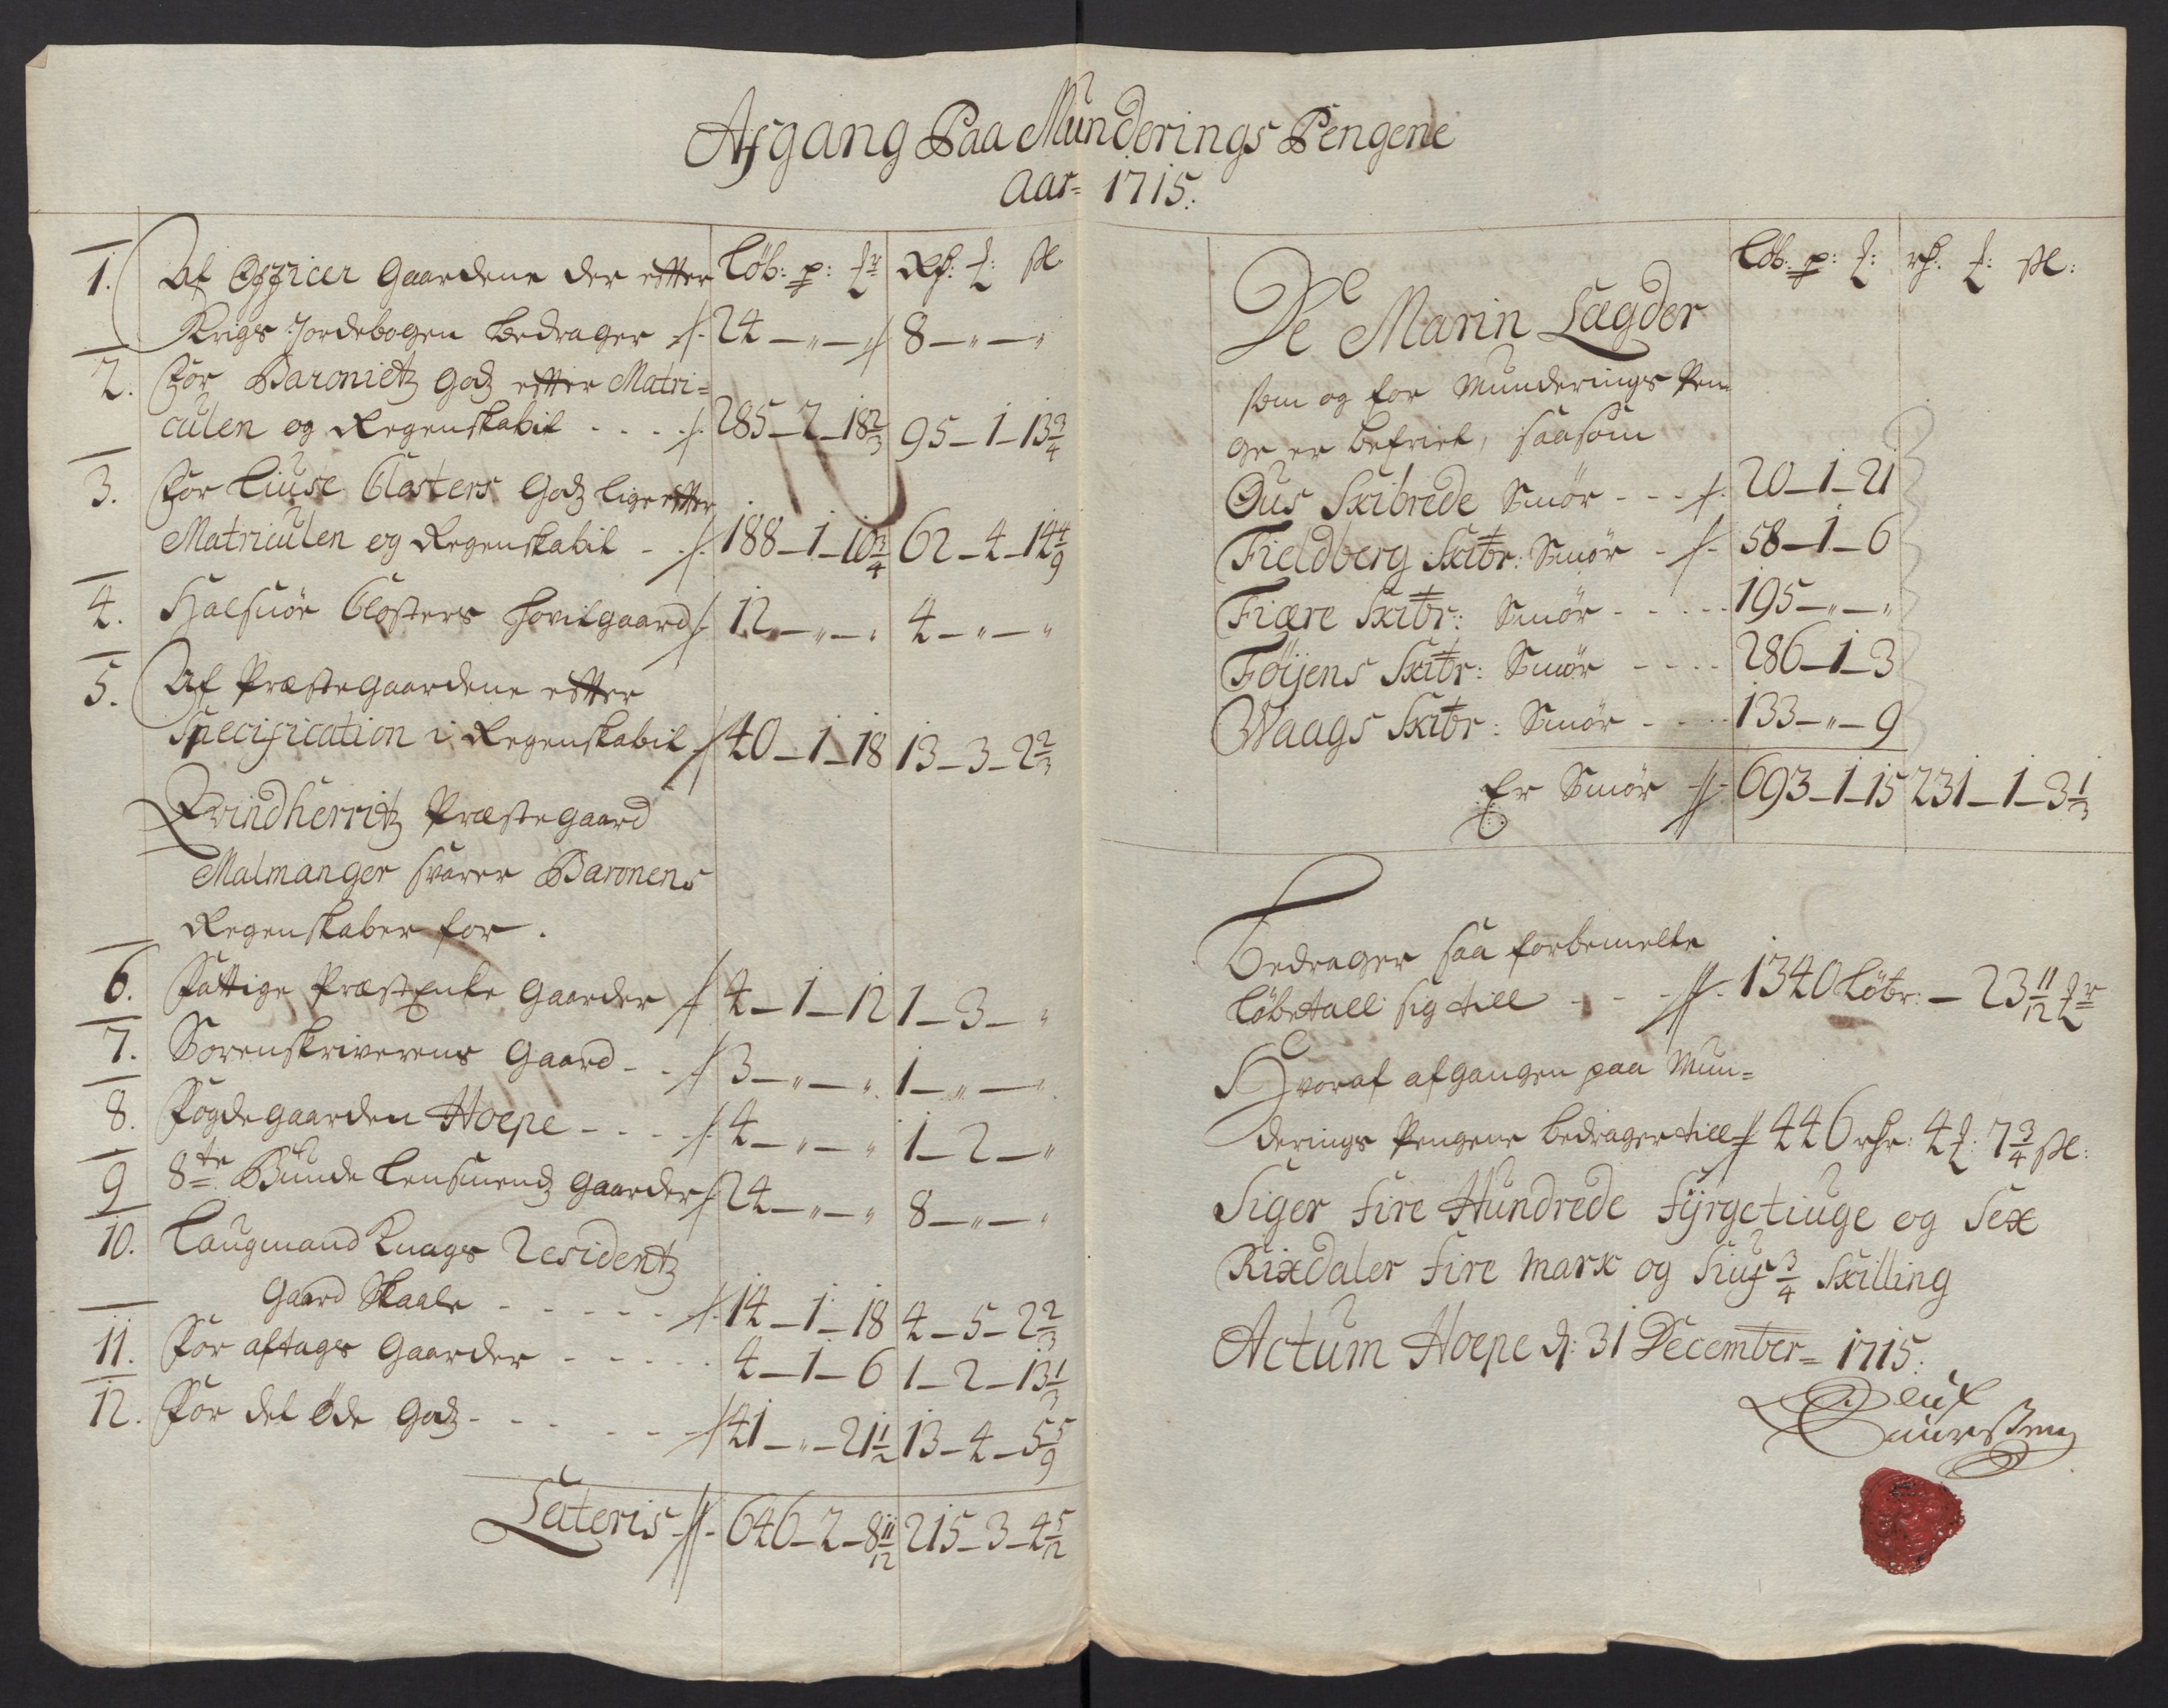 Afgang Paa Munderings Pengene
Aar= 1715:
Løb: p: ℔r Rdr: ℔: sl.
1. Af Officer Gaardene der efter
Krigs Jordebogen bedrager 24 — " — " 8 — " — "
2. For Baronietz Godz efter Matri=
culen og Regenskabit . . . . 285 — 2 — 18 2/3 95 — 1 — 13 3/4
3. For Liuse Closters Godz lige efter
Matriculen og Regenskabit - . 188 — 1 — 10 3/4 62 — 4 — 14 4/9
4. Halsnör Closters hovitgaard 12 — " — " 4 — " — "
5. Af Præstegaardene efter
Specification i Regenskabit 40 — 1 — 18 13 — 3 — 2 2/3
Qvindherritz Præstegaard
Malmanger svarer Baronens
Regenskaber for .
6. Fattige PræstEnke Gaarder 4 — 1 — 12 1 — 3 — "
7. Sorenskriverens Gaard - - 3 — " — " 1 — " — "
8. Fogdegaarden Hoepe - - - 4 — " — " 1 — 2 — "
9 8te Bunde Lensmendz Gaarder 24 — " — " 8 — " — "
10. Laugmand Knags Residentz
Gaard Skaale - - - - - 14 — 1 — 18 4 — 5 — 2 2/3
11. For aftags Gaarder - - - - . 4 — 1 — 6 1 — 2 — 13 1/3
12. For det öde Godz - - - - - 41 — " — 21 1/2 13 — 4 — 5 5/9
Lateris 646 — 2 — 8 11/12 215 — 3 — 4 5/12
Løb: p: ℔: rd. ℔: sl:
De Marin Lægder
som og for Munderings Pen=
ge er befriet, saasom
Ous Skibrede Smör - - - 20 — 1 — 21
Fieldberg Skibr: Smör - 58 — 1 — 6
Fiære Skibr: Smör - - - - - 195 — " — "
Föijens Skibr: Smör - - - - 286 — 1 — 3
Waags Skibr: Smör - - - - 133 — " — 9
Er Smör 693 — 1 — 15 231 — 1 — 3 1/3
Bedrager saa forbemelte
Löbetall sig till - - - 1340 Löbr: — 23 11/12 ℔r
Hvoraf afgangen paa Mun=
derings Pengene bedrager till 446 rdr: 4 ℔: 7 3/4 sl:
Siger Fire Hundrede Fÿrgetiuge og Sex
Rixdaler Fire Mark og Siuf 3/4 Skilling
Actum Hoepe d: 31 December= 1715.
Oluf
Laurssen